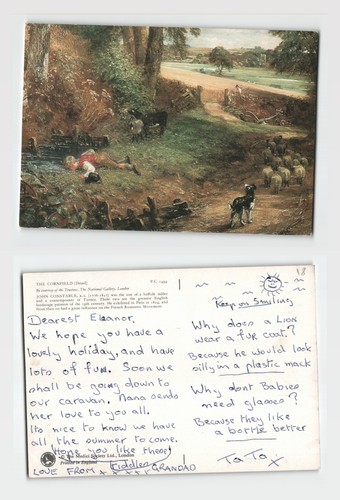 THE CORNFIELD (Detail)
By courtesy of the Trustees, The National Gallery, London
JOHN CONSTABLE, R.A. (1776-1837) was the son of a Suffolk miller
and a contemporary of Turner. These two are the greatest English
landscape painters of the 19th century. He exhibited in Paris in 1824, and
from then on had a great influence on the French Romantic Movement.
Dearest Eleanor,
We hope you have a
lovely holiday, and have
lots of fun. Soon we
shall be going down to
our caravan. Nana sends
her love to you all.
Its nice to know we have
all the summer to come.
(Hope you like these)
The Medici Society Ltd., London
Printed in England
Riddles
LOVE FROM GRANDAD
18
Keep on Smiling
Why does a LION
wear a fur coat?
Because he would look
silly in a plastic mack
Why dont Babies
need glasses?
Because they like
a bottle better
TaTa x